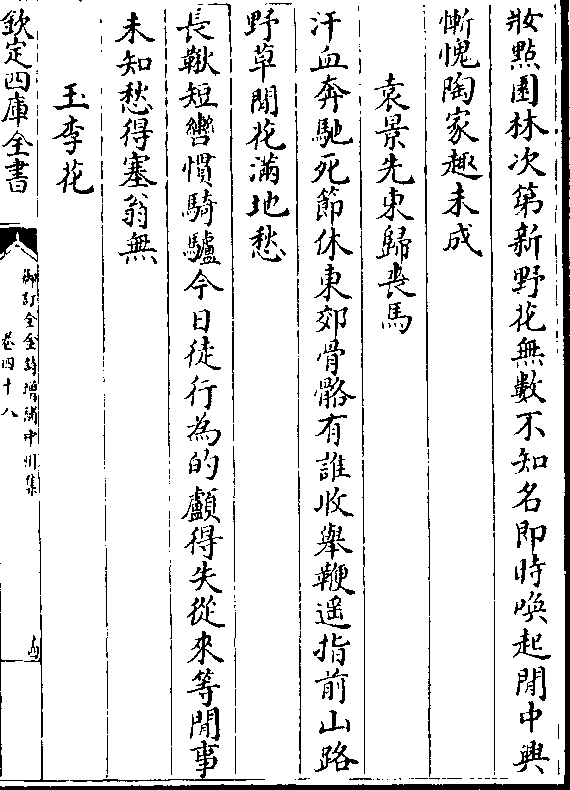 妝㸃園林次第新野花無數不知名即時喚起閒中興
慚愧陶家趣未成
袁景先東歸喪馬
汗血奔馳死節休東郊骨骼有誰收舉鞭遥指前山路
野草閒花滿地愁
長鞦短轡慣騎驢今日徒行為的顱得失從來等閒事
未知愁得塞翁無
玉李花
欽定四庫全書
御訂全金詩增補中州集
卷四十八